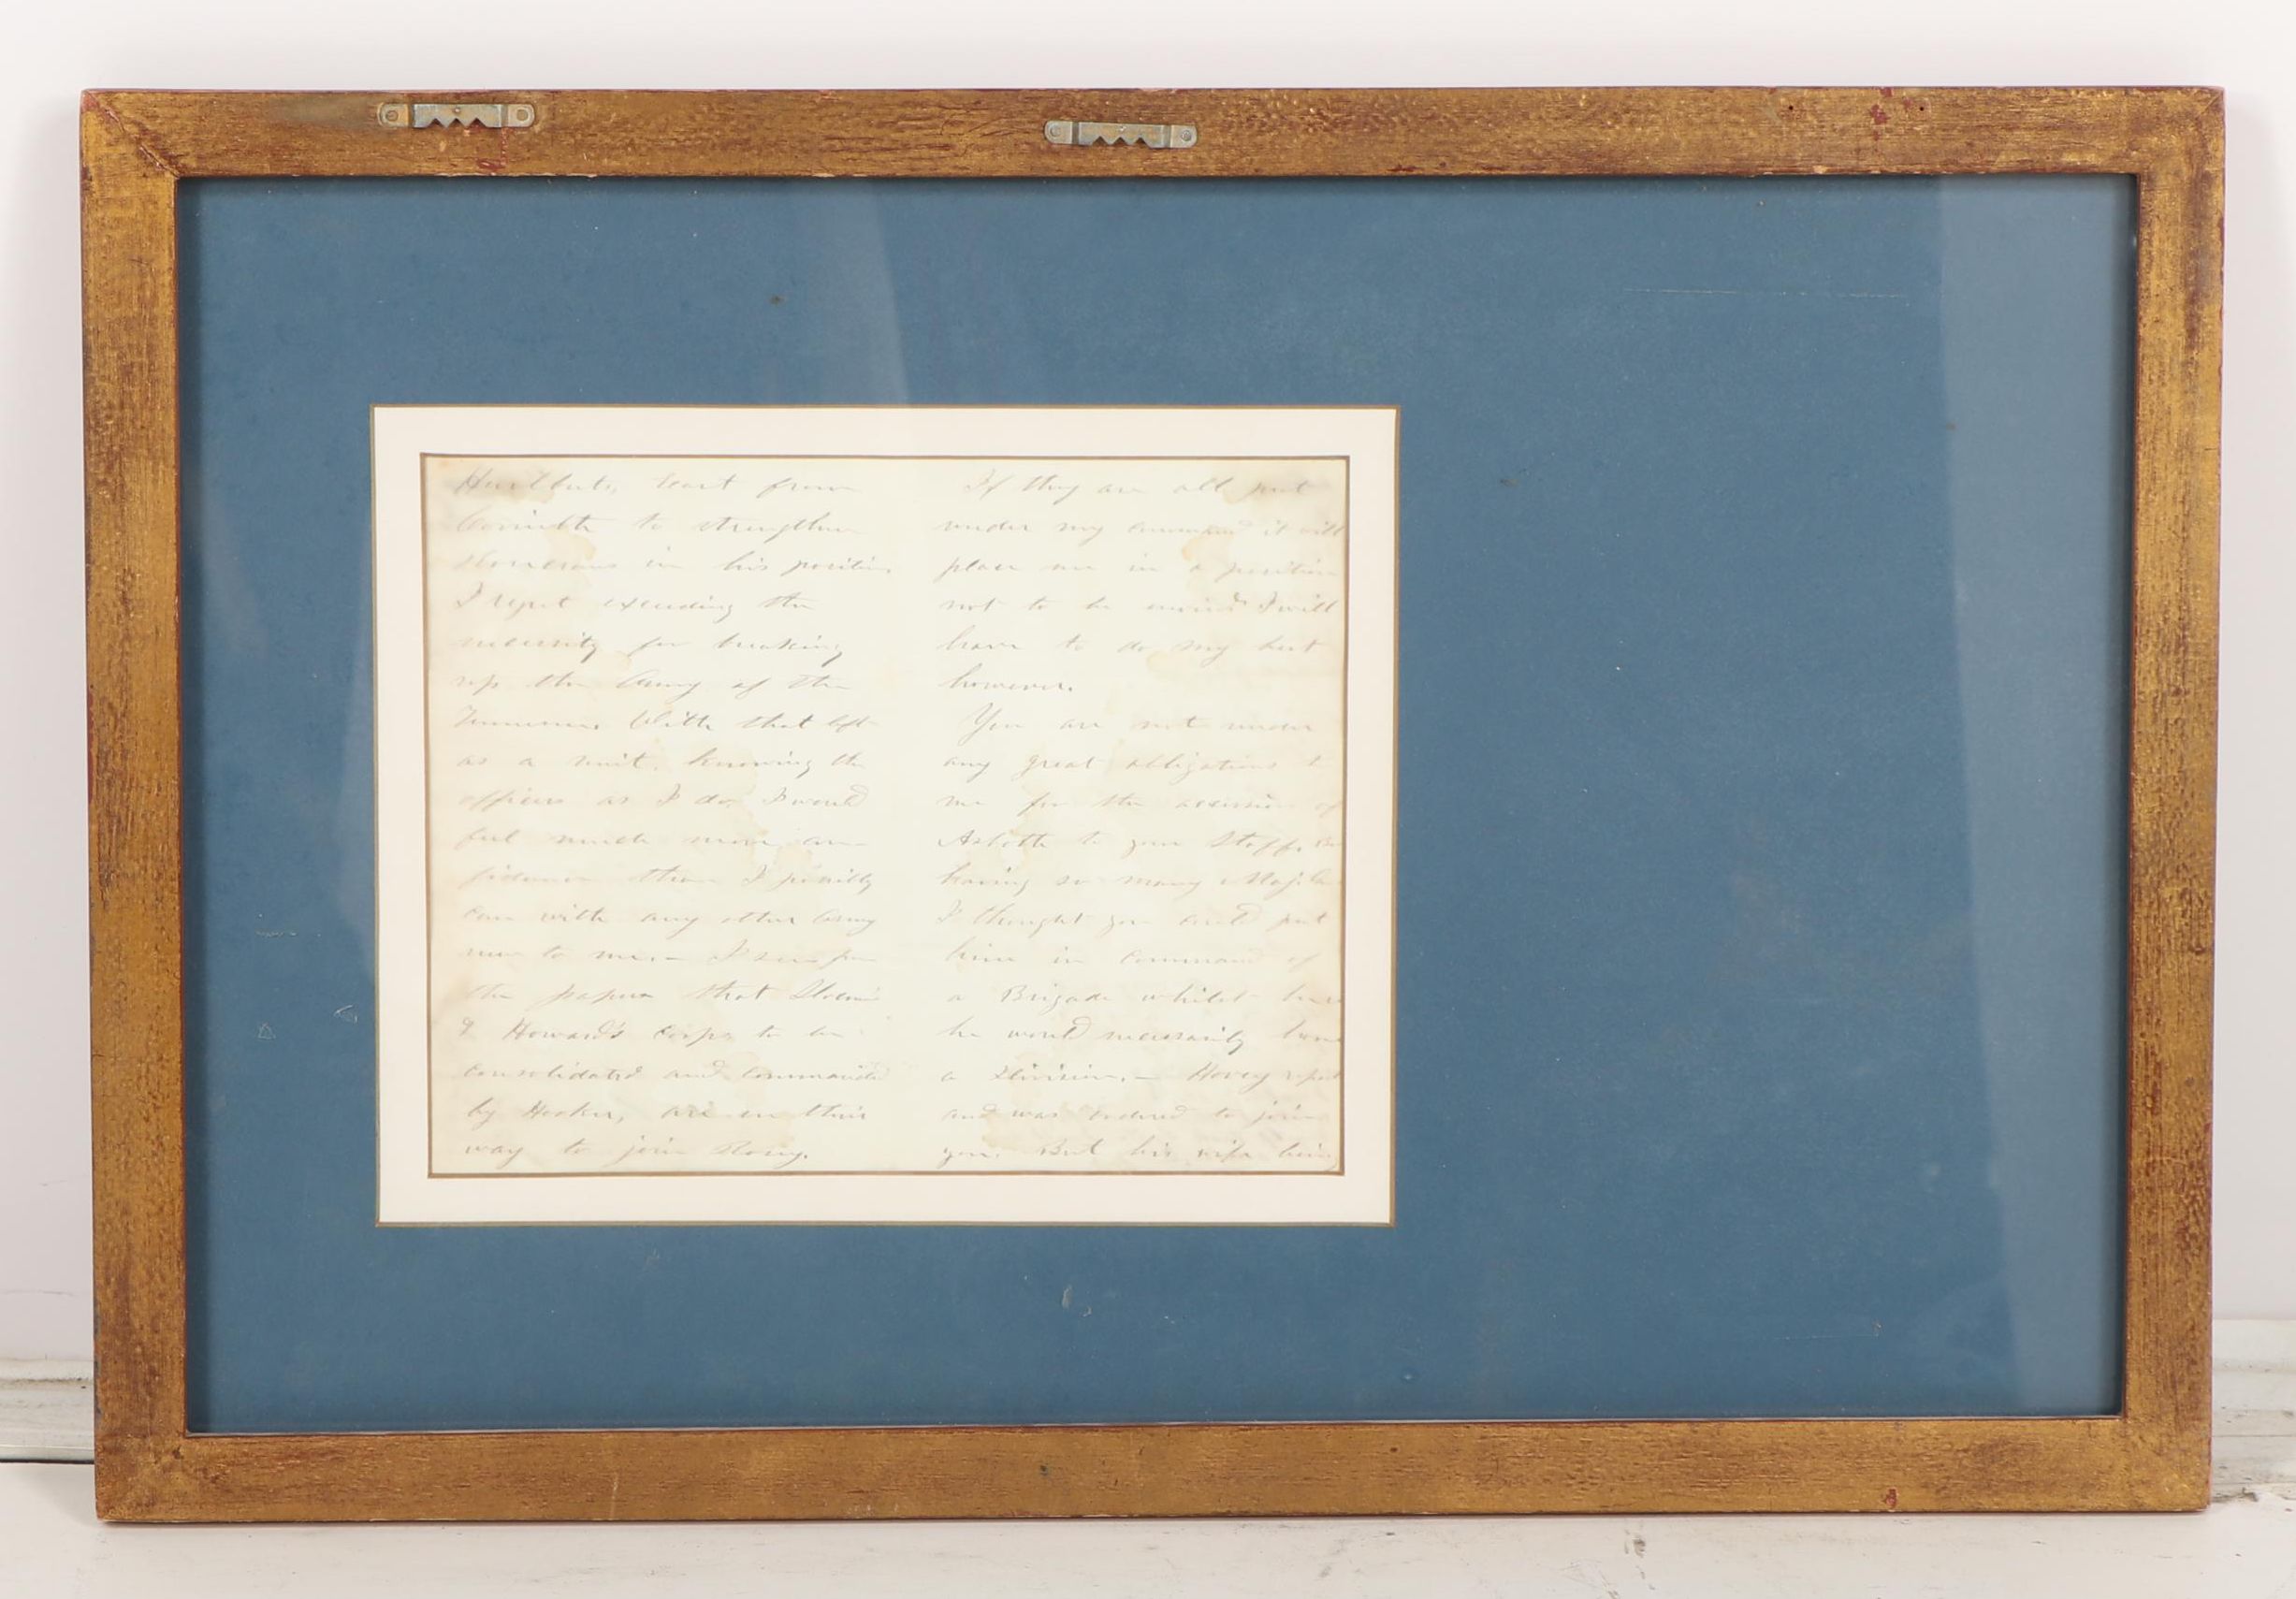 Hurlbut, east from
Corinth to strengthen
Stevenson in his position
I regret exceeding the
necessity for breaking
up the Army of the
Tennessee. With that left
as a unit, knowing the
officers as I do, I would
feel much more con-
fidence than I possibly
can with any other Army
new to me. — I see from
the papers that Slocum's
& Howard's Corps to be
consolidated and commanded
by Hooker, are on their
way to join Rosey.
If they are all put
under my command it will
place me in a position
not to be envied I will
have to do my best
however.
You are not under
any great obligations to
me for the accession of
Asboth to your Staff.
having so many Maj.
I thought you could put
him in command of
a Brigade whilst here
he would necessarily have
a Division. — Hovey
and was ordered to join
you. But his wife being